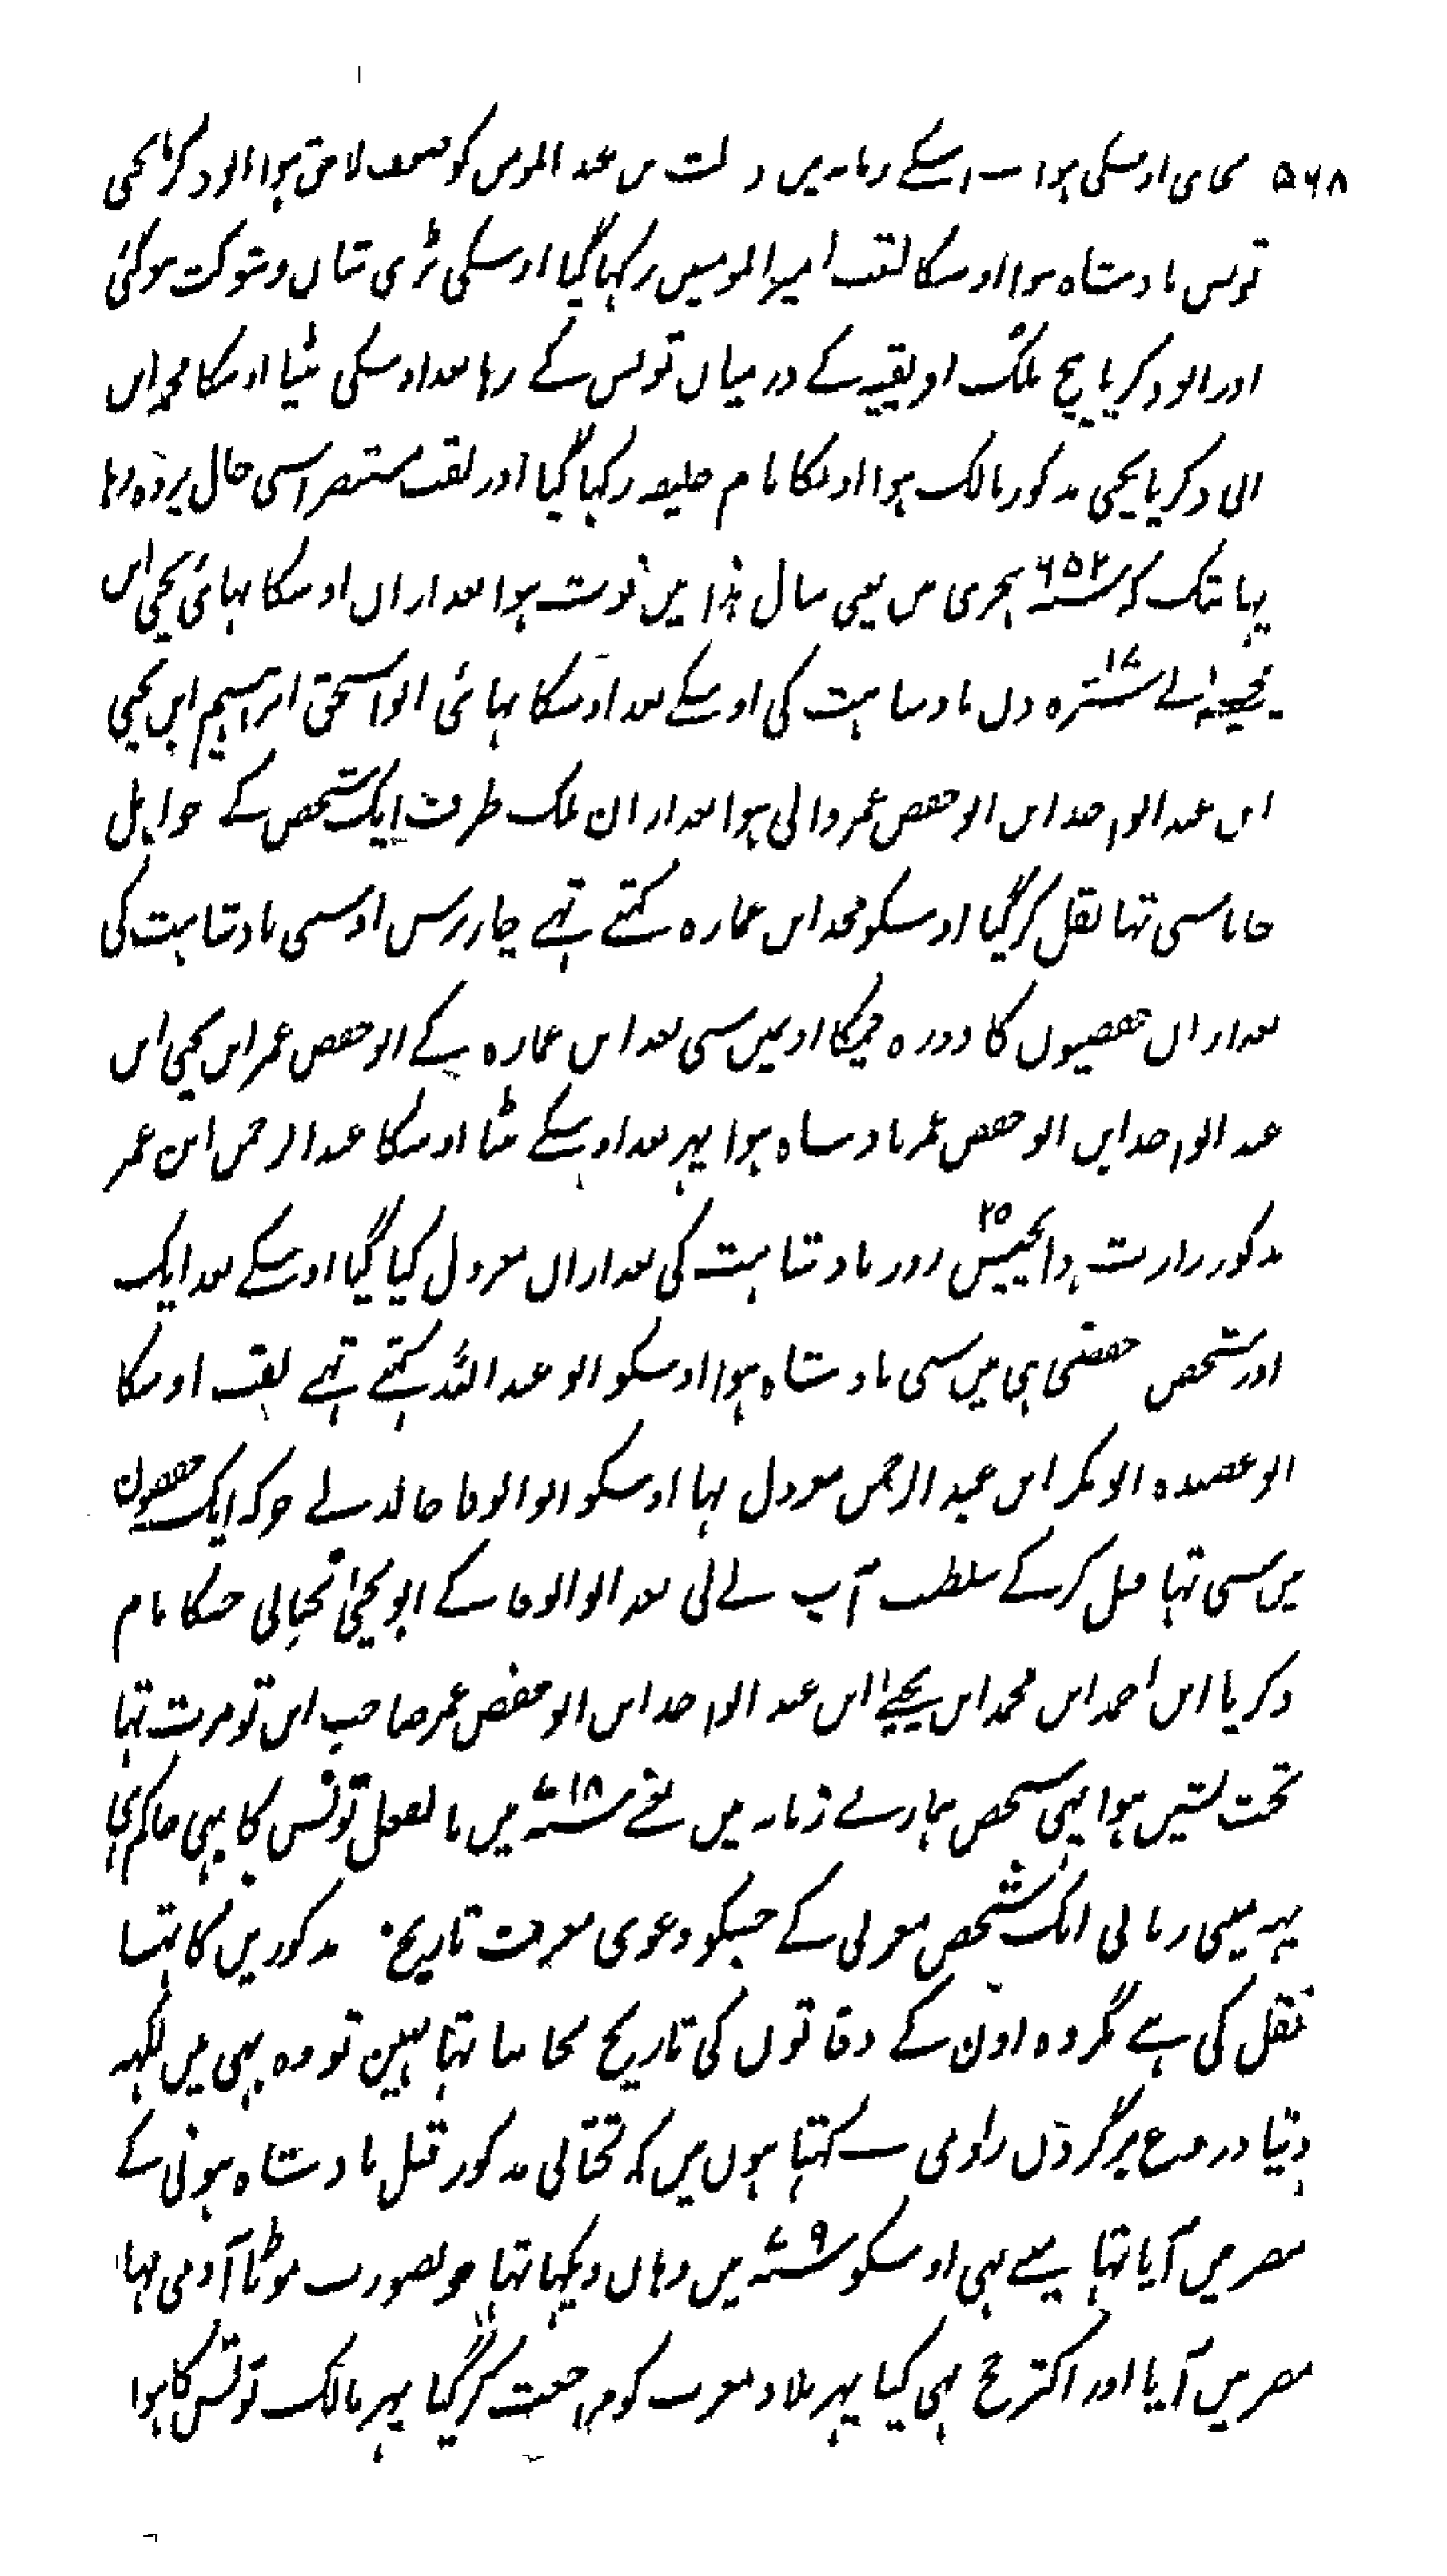 ۵۶۸ بجای اوسکی ہوا اسکے زمانہ میں دولت بن عبد المومن کو ضعف لاحق ہوا ابو ذکریا یحی
تونس بادشاہ ہوا اوسکا لقب امیر المومنین رکہا گیا اوسکی بڑی شان و شوکت ہوگئی
اور ابو ذکریا یحی ملک افریقیہ کے درمیان تونس کے رہا بعد اوسکی بیٹا اوسکا محمد ابن
ابی ذکریا یحی مذکور مالک ہوا اوسکا نام خلیفہ رکہا گیا اور لقب مستنصر اسی حال پر وہ رہا
یہانتک کہ سنہ ۶۵۲ ہجری میں یعنی سال ہذا میں فوت ہوا بعد ازاں اوسکا بہائی یحی ابن
یحیی نے سترہ ۱۷ دن بادشاہت کی اوسکے بعد اوسکا بہائی ابو اسحق ابراہیم ابن یحیی
ابن عبد الواحد ابن ابو حفص عمر والی ہوا بعد ازان ملک طرف ایک شخص کے جو اہل
سی تہا نقل کر گیا اوسکو محمد ابن عمارہ کہتے تہے چار برس اوسنی بادشاہت کی
بعد ازاں حفصیوں کا دورہ چمکا اونمیں سی بعد ابن عمارہ کے ابو حفص عمر ابن یحیی ابن
عبد الواحد ابن ابو حفص عمر بادشاہ ہوا پہر بعد اوسکے بیٹا اوسکا عبد الرحمن ابن عمر
مذکور وارث ہوا پچیس ۲۵ روز بادشاہت کی بعد ازاں معزول کیا گیا اوسکے بعد ایک
اور شخص حفصی ہی میں سی بادشاہ ہوا اوسکو ابو عبد اللہ کہتے تہے لقب اوسکا
ابو عصیدہ ابو بکر ابن عبد الرحمن معزول تہا اوسکو ابو البقا خالد نے جو کہ ایک حفصیوں
میں سی تہا قتل کرکے سلطنت آپ لے لی بعد ابو البقا کے ابو یحیی لحیانی جسکا نام
ذکریا ابن احمد ابن محمد ابن یحیی ابن عبد الواحد ابن ابو حفص عمر صاحب ابن تومرت تہا
تخت نشین ہوا یہی شخص ہمارے زمانہ میں یعنے سنہ ۷۱۸ میں بالفعل تونس کا یہی حاکم ہی
یہہ میںنی زبانی ایک شخص مغربی کے جسکو دعوی معرفت تاریخ مذکورین کا تہا
نقل کی ہے مگر وہ اون کے وفاتوں کی تاریخ بجا جانتا تہا نہیں تو وہ بہی میں لکہہ
دیتا دروغ بر گردن راوی کہتا ہوں میں کہ لحیانی مذکور قبل بادشاہ ہونی کے
مصر میں آیا تہا مینے بہی اوسکو سنہ ۷۰۹ میں وہاں دیکہا تہا خوبصورت موٹا آدمی تہا
مصر میں آیا اور اکثر حج بہی کیا پہر بلاد مغرب کو مراجعت کر گیا پہر مالک تونس کا ہوا